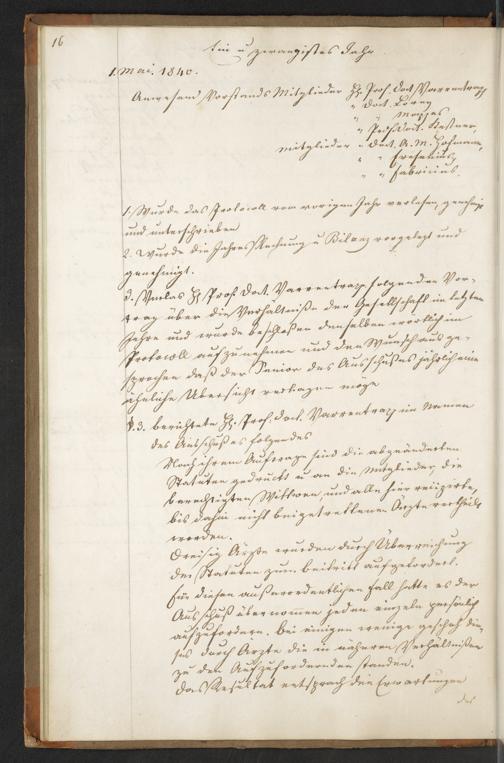 16
Ein u zwanzigstes Jahr.
1. Mai. 1840.
Anwesend Vorstands Mitglieder H. Prof. Doct Varrentrapp
" Doct. Lorey
" " Mappes
" Prof. Doct. Kestner,
Mitglieder " Doct. A. M. Hofmann,
" " Fresenius,
" " Fabricius.
1. Wurde das Protocoll vom vorigen Jahr verlesen, genehmigt
und unterschrieben
2. Wurde die Jahres Rechnung u Bilanz vorgelegt und
genehmigt.
3. Verlas H. Prof. Doct. Varrentrapp folgenden Vor-
trag über die Verhältniße der Gesellschaft im letzten
Jahre und wurde beschloßen denselben wörtlich im
Protocoll aufzunehmen und den Wunsch aus ge-
sprochen daß der Senior des Ausschußes jährlich eine
ähnliche Übersicht vortragen möge
§. 3. berichtete H. Prof. Doct. Varrentrapp im Namen
des Ausschußes folgendes
Nach ihrem Auftrage sind die abgeänderten
Statuten gedruckt u an die Mitglieder, die
berechtigten Wittwen, und alle hier recipirte,
bis dahin nicht beigetrettenen Ärzte vertheilt
worden.
Dreisig Ärzte wurden durch Überreichung
der Statuten zum beitritt aufgefordert.
Für diesen außerordentlichen Fall hatte es der
Ausschuß übernommen jeden einzeln persönlich
aufzufordern. bei einigen wenige geschah die-
ses durch Ärzte die in näheren Verhältnißen
zu den Aufzufordernden standen.
Das Resultat entsprach den Erwartungen
des